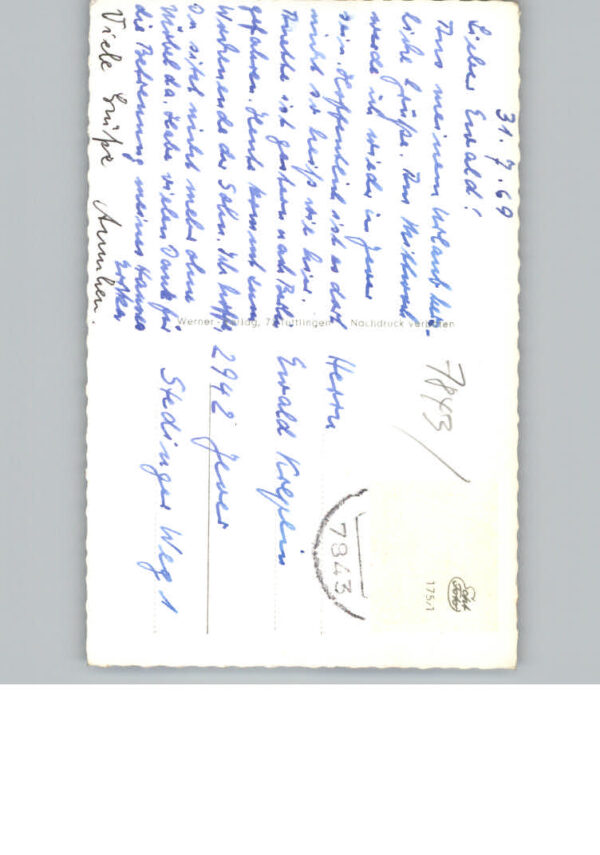 31.7.69
Lieber Ewald!
Aus meinem Urlaub herz-
liche Grüße. Am Mittwoch
werde ich wieder in Jever
sein. Hoffentlich ist es dort
nicht so heiß wie hier.
ist gestern nach
gefahren. Heute kommt zum
Wochenende der Sohn. Ich hoffe,
Du sitzt nicht mehr ohne
Möbel da. Habe vielen Dank für
die Betreuung meines Hauses
Viele Grüße Annchen.
Werner-Verlag, 7 Tuttlingen Nachdruck verboten
7843
Herrn
Ewald Kreplin
2942 Jever
Stedinger Weg 1
7843
175/1